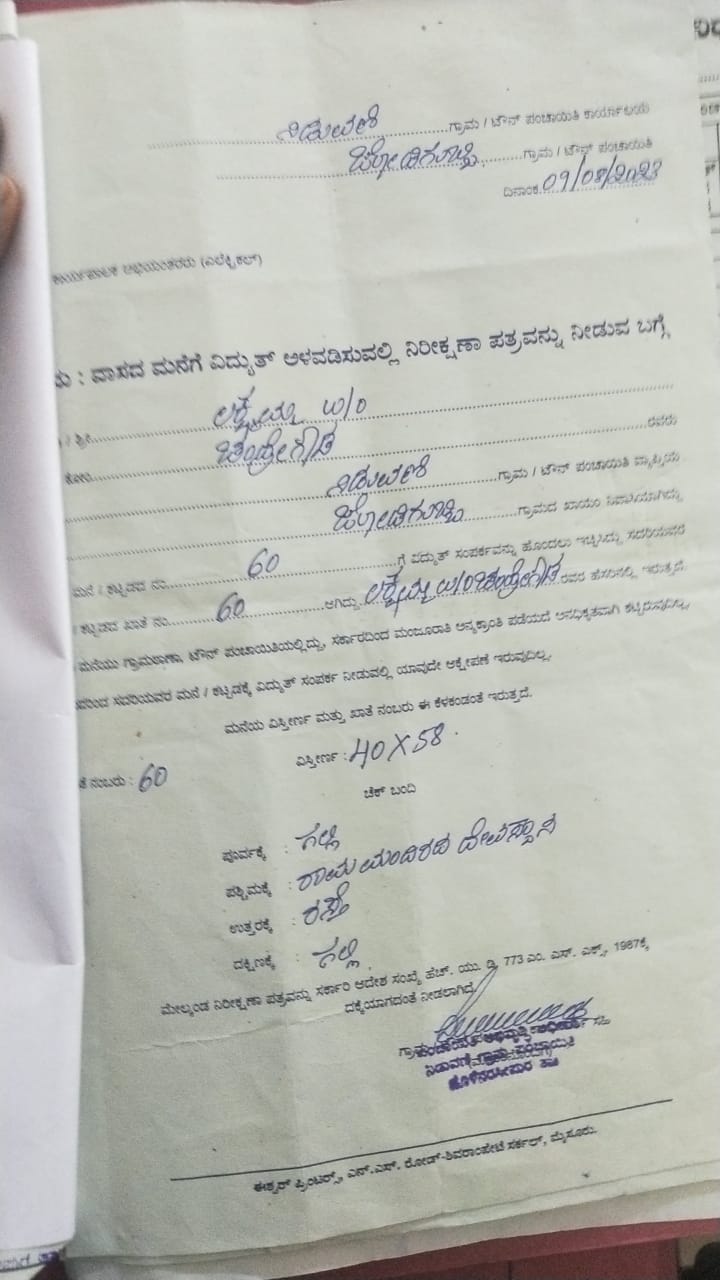 ನಿಡುವಣಿ ಗ್ರಾಮ / ಟೌನ್ ಪಂಚಾಯಿತಿ ಕಾರ್ಯಾಲಯ
ಜೋಡಿಗುಬ್ಬಿ ಗ್ರಾಮ / ಟೌನ್ ಪಂಚಾಯಿತಿ
ದಿನಾಂಕ 09/08/2023
ಕಾರ್ಯಪಾಲಕ ಅಭಿಯಂತರರು (ಎಲೆಕ್ಟ್ರಿಕಲ್)
: ವಾಸದ ಮನೆಗೆ ವಿದ್ಯುತ್ ಅಳವಡಿಸುವಲ್ಲಿ ನಿರೀಕ್ಷಣಾ ಪತ್ರವನ್ನು ನೀಡುವ ಬಗ್ಗೆ
/ ಶ್ರೀ ಲಕ್ಷ್ಮಮ್ಮ W/O
ಕೋಂ ಚಂದ್ರೇಗೌಡ ರವರು
ನಿಡುವಣಿ ಗ್ರಾಮ / ಟೌನ್ ಪಂಚಾಯಿತಿ ವ್ಯಾಪ್ತಿಯ
ಜೋಡಿಗುಬ್ಬಿ ಗ್ರಾಮದ ಖಾಯಂ ನಿವಾಸಿಯಾಗಿದ್ದು
ಮನೆ / ಕಟ್ಟಡದ ನಂ. 60 ಗೆ ವಿದ್ಯುತ್ ಸಂಪರ್ಕವನ್ನು ಹೊಂದಲು ಇಚ್ಛಿಸಿದ್ದು ಸದರಿಯವರ
/ ಕಟ್ಟಡದ ಖಾತೆ ನಂ. 60 ಆಗಿದ್ದು ಲಕ್ಷ್ಮಮ್ಮ W/O ಚಂದ್ರೇಗೌಡ ರವರ ಹೆಸರಿನಲ್ಲಿ ಇರುತ್ತದೆ.
ಮನೆಯು ಗ್ರಾಮಠಾಣಾ, ಟೌನ್ ಪಂಚಾಯಿತಿಯಲ್ಲಿದ್ದು, ಸರ್ಕಾರದಿಂದ ಮಂಜೂರಾತಿ ಅನ್ಯಕ್ರಾಂತಿ ಪಡೆಯದೆ ಅನಧಿಕೃತವಾಗಿ ಕಟ್ಟಿರುವುದಿಲ್ಲ.
ಸದರಿಯವರ ಮನೆ / ಕಟ್ಟಡಕ್ಕೆ ವಿದ್ಯುತ್ ಸಂಪರ್ಕ ನೀಡುವಲ್ಲಿ ಯಾವುದೇ ಆಕ್ಷೇಪಣೆ ಇರುವುದಿಲ್ಲ.
ಮನೆಯ ವಿಸ್ತೀರ್ಣ ಮತ್ತು ಖಾತೆ ನಂಬರು ಈ ಕೆಳಕಂಡಂತೆ ಇರುತ್ತದೆ.
ನಂಬರು : 60 ವಿಸ್ತೀರ್ಣ : 40 X 58
ಚೆಕ್ ಬಂದಿ
ಪೂರ್ವಕ್ಕೆ : ಗಲ್ಲಿ
ಪಶ್ಚಿಮಕ್ಕೆ : ರಾಮಮಂದಿರದ ದೇವಸ್ಥಾನ
ಉತ್ತರಕ್ಕೆ : ರಸ್ತೆ
ದಕ್ಷಿಣಕ್ಕೆ : ಗಲ್ಲಿ
ಮೇಲ್ಕಂಡ ನಿರೀಕ್ಷಣಾ ಪತ್ರವನ್ನು ಸರ್ಕಾರಿ ಆದೇಶ ಸಂಖ್ಯೆ ಹೆಚ್. ಯು. ಡಿ. 773 ಎಂ. ಎಸ್. ಎಕ್ಸ್. 1987ಕ್ಕೆ
ದಕ್ಕೆಯಾಗದಂತೆ ನೀಡಲಾಗಿದೆ.
ಪಂಚಾಯತಿ ಅಭಿವೃದ್ಧಿ ಅಧಿಕಾರಿ
ನಿಡುವಣಿ ಗ್ರಾಮ ಪಂಚಾಯಿತಿ
ಹೊಳೆನರಸೀಪುರ ತಾ||
ಈಶ್ವರ್ ಪ್ರಿಂಟರ್ಸ್, ಎನ್.ಎಸ್. ರೋಡ್-ಶಿವರಾಂಪೇಟೆ ಸರ್ಕಲ್, ಮೈಸೂರು.